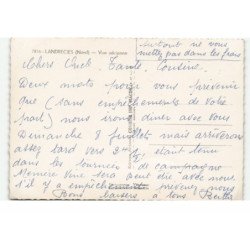 7816 - LANDRECIES (Nord) - Vue aérienne
surtout ne vous
mettez pas dans les frais
Chers Oncle Tante Cousine
Deux mots pour vous prévenir
que (sans empêchements de votre
part) nous irons dîner avec vous
Dimanche 8 Juillet mais arriverons
assez tard vers 2H étant tenu
dans les tournées de campagne
sera peut être avec nous
s'il y a empêchement prévenez nous
Bons baisers à tous Berthe